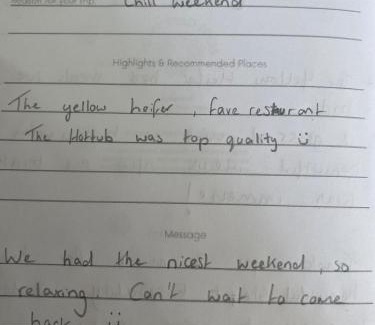 Reason for your trip: Chill weekend
Highlights & Recommended Places
The yellow heifer, fave restaurant
The Hottub was top quality ü
Message
We had the nicest weekend, so
relaxing. Can't wait to come
back ü